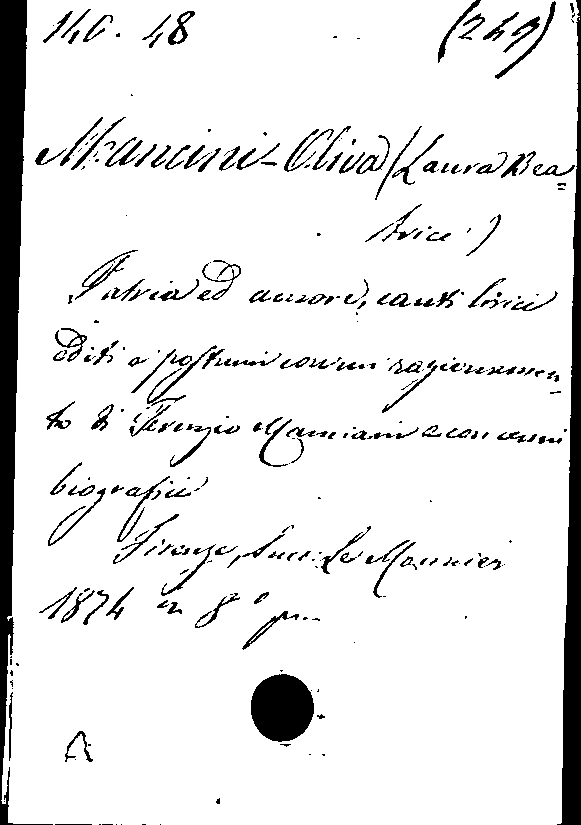 14C. 48 (249)
Mancini-Oliva (Laura Bea=
trice)
Patria ed amore, canti lirici
editi e postumi con un ragionamen=
to di Terenzio Mamiani e con cenni
biografici
Firenze, Succ. Le Monnier
1874 in 8° p.
A